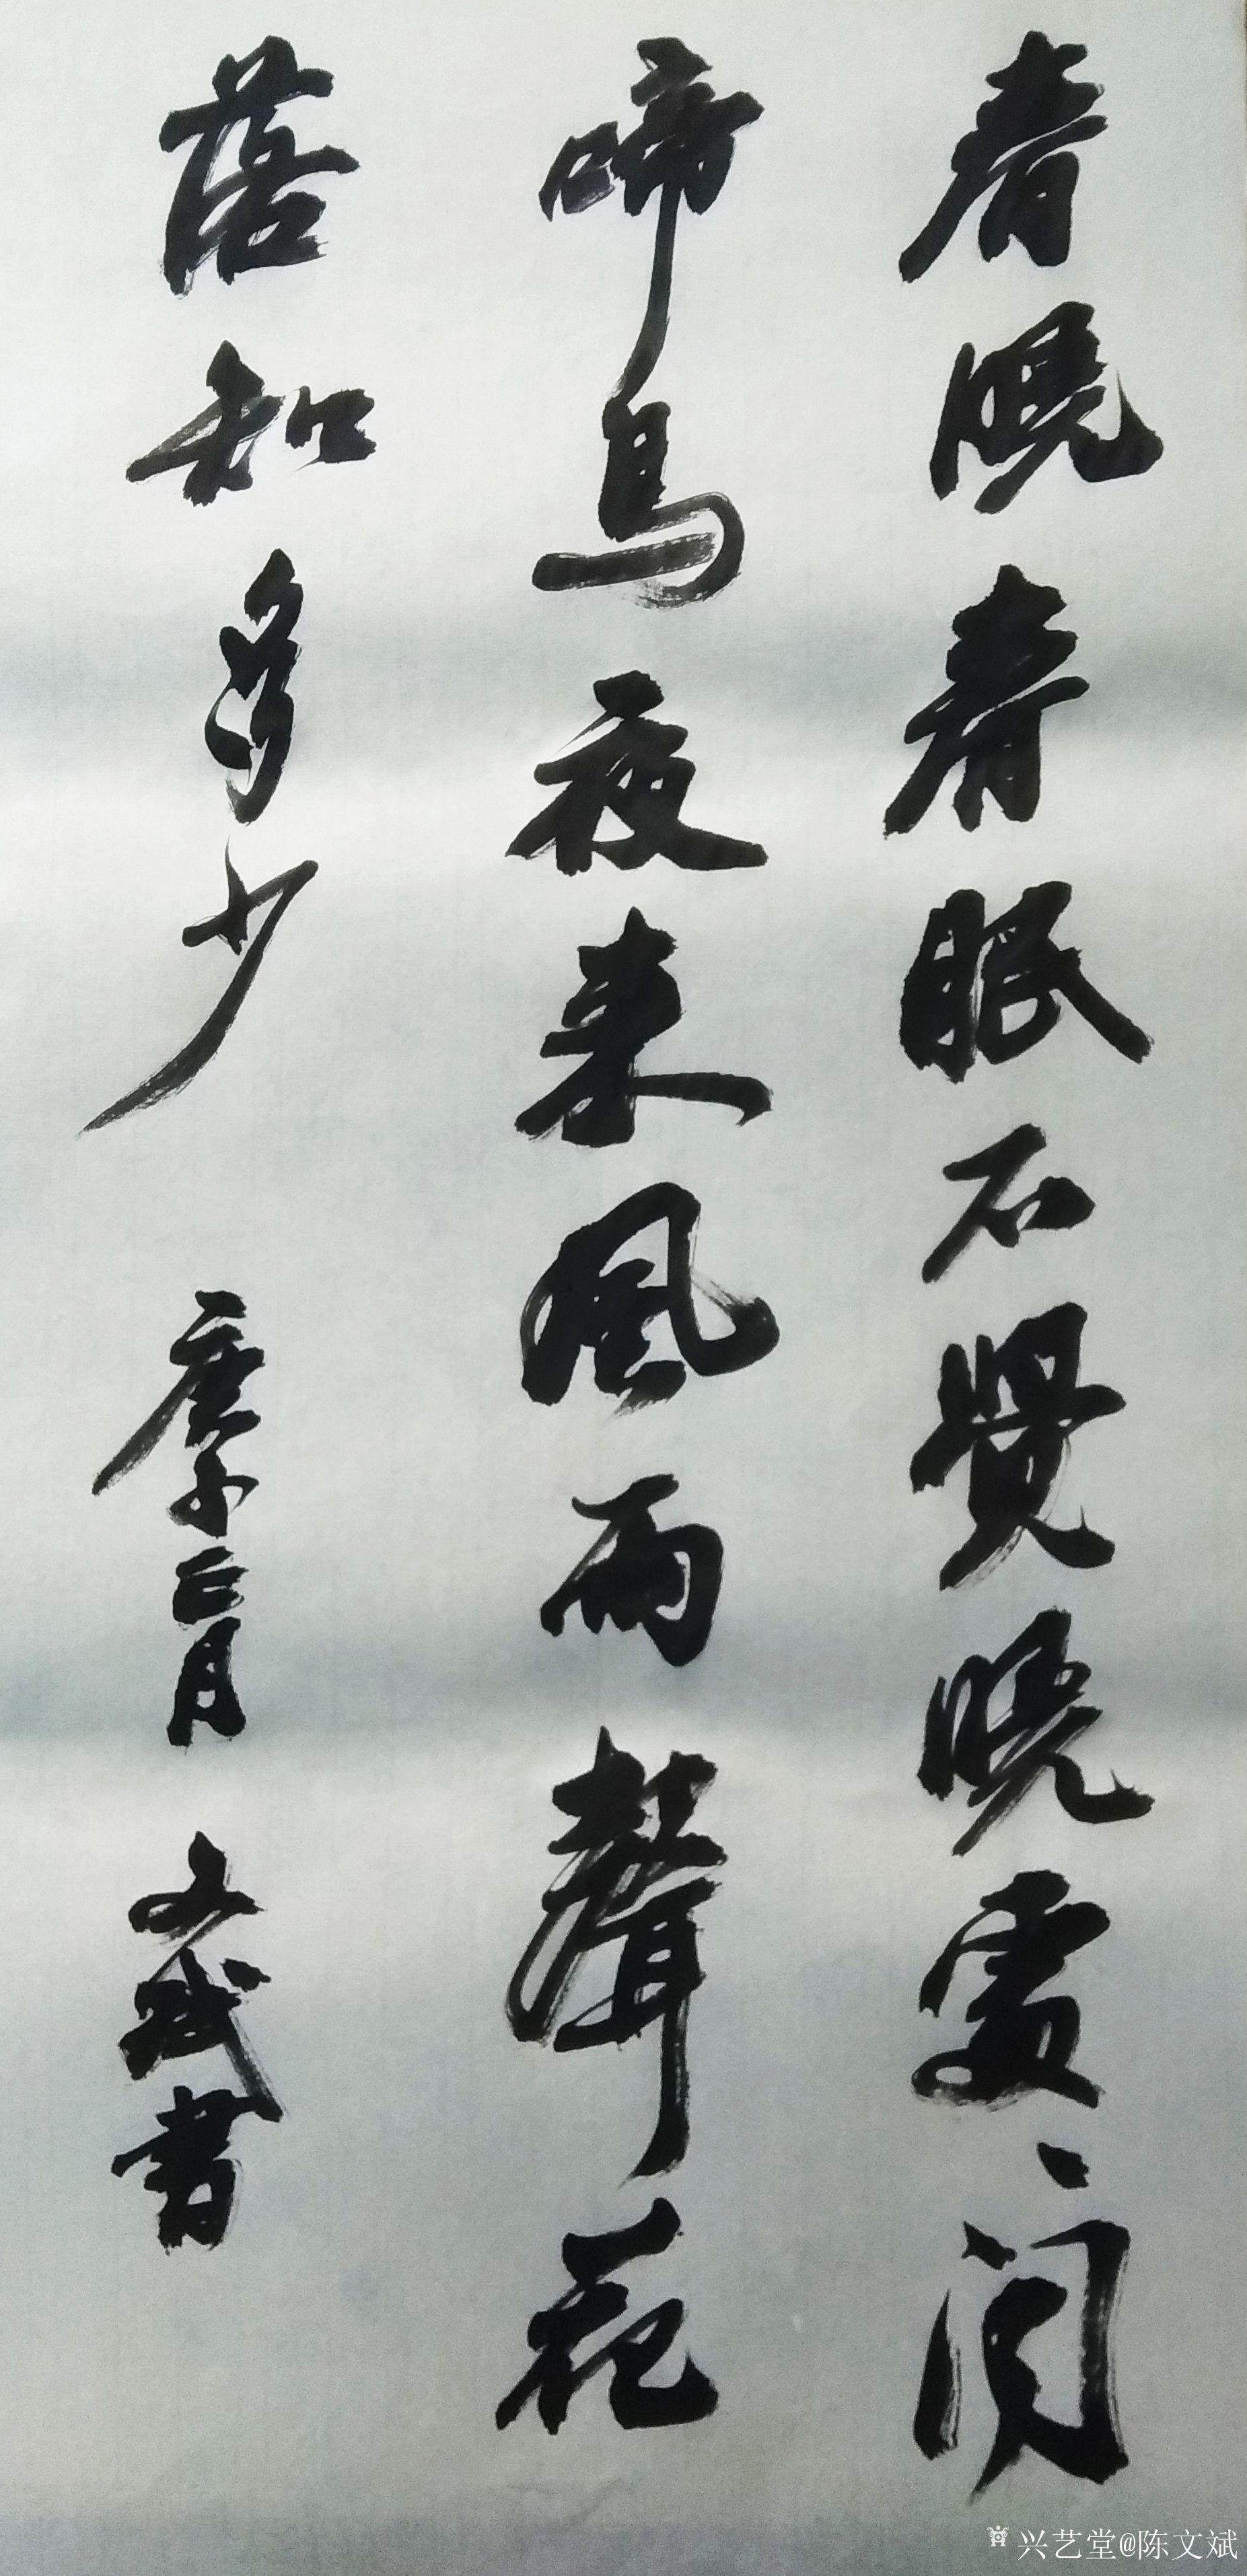 春曉春眠不覺曉處〻聞
啼鳥夜来風雨聲花
落知多少
庚子二月
文斌書
兴艺堂@陈文斌